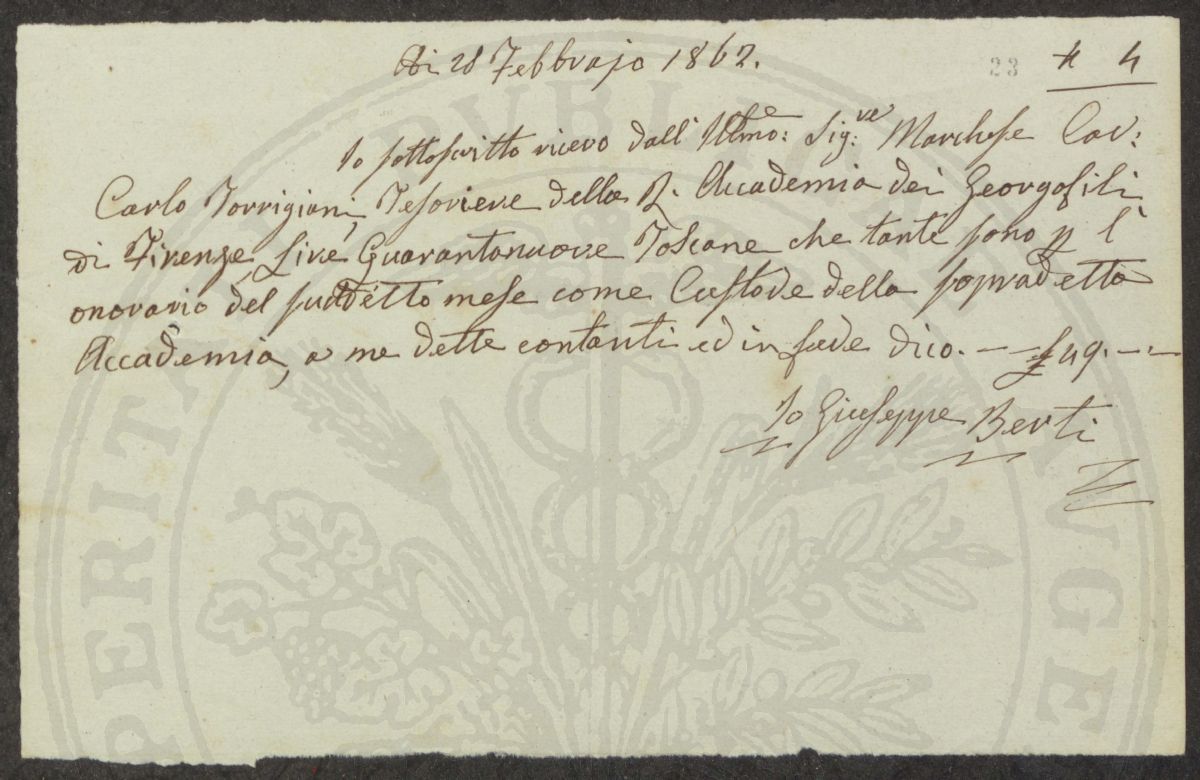 Adi 28 Febbrajo 1862.
23
N 4
Io sottoscritto ricevo dall' Illmo: Sig:re Marchese Cav:
Carlo Torrigiani, Tesoriere della R. Accademia dei Georgofili
di Firenze, Lire Quarantanuove Toscane che tante sono p l'
onorario del suddetto mese come Custode della sopradetta
Accademia, a me dette contanti ed in fede dico. — £49. —
Io Giuseppe Berti
PROSPERITATI PUBLICAE AUGENDAE